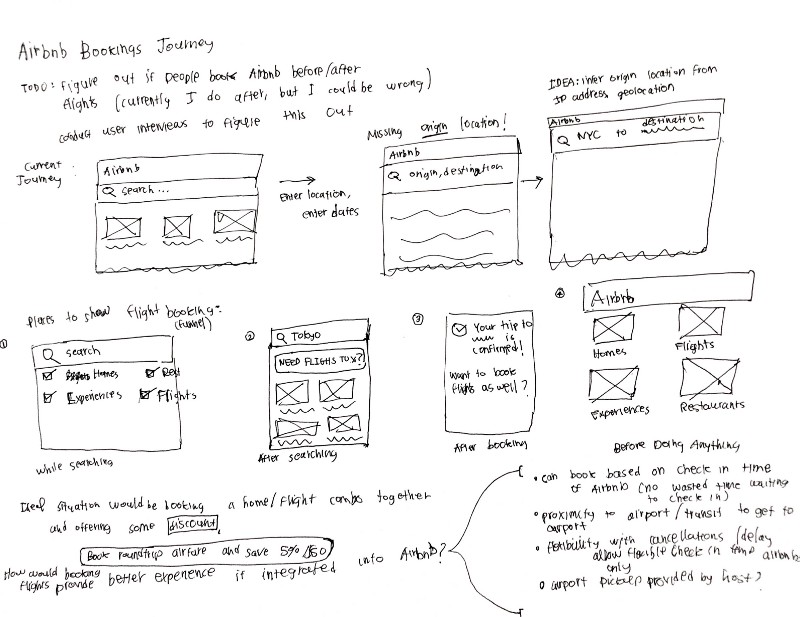 Airbnb Bookings Journey
TODO: Figure out if people book Airbnb before/after
flights (currently I do after, but I could be wrong)
conduct user interviews to figure this out
IDEA: infer origin location from
IP address geolocation
Missing origin location!
Current
Journey:
Airbnb
Search...
Enter location,
enter dates
Airbnb
origin, destination
Airbnb
NYC to destination
Places to show flight booking:
(funnel)
①
search
Homes
Rest
Experiences
Flights
while searching
②
Tokyo
NEED FLIGHTS TO X?
After searching
③
Your trip to
is
confirmed!
Want to book
flights as well?
After booking
④
Airbnb
Homes
Flights
Experiences
Restaurants
Before Doing Anything
Ideal situation would be booking a home/flight combo together
and offering some discount
Book roundtrip airfare and save 5%
How would booking
flights provide better experience if integrated into Airbnb?
• can book based on check in time
of Airbnb (no wasted time waiting
to check in)
• proximity to airport/transit to get to
airport
• flexibility with cancellations/delay
allow flexible check in time airbnbs
only
• airport pickup provided by host?